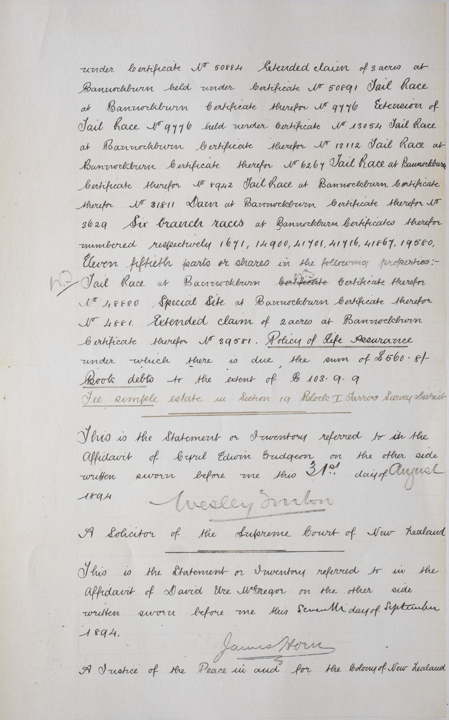 under Certificate Nº 50884 Extended claim of 3 acres at
Bannockburn held under Certificate Nº 50891 Tail Race
at Bannockburn Certificate therefor Nº 9776 Extension of
Tail Race Nº 9776 held under Certificate Nº 13054 Tail Race
at Bannockburn Certificate therefor Nº 12112 Tail Race at
Bannockburn Certificate therefor Nº 6267 Tail Race at Bannockburn
Certificate therefor Nº 8942 Tail Race at Bannockburn Certificate
therefor Nº 31811 Dam at Bannockburn Certificate therefor Nº
3629 Six branch races at Bannockburn Certificates therefor
numbered respectively 1671, 14900, 41701, 41716, 41867, 19580.
Eleven fiftieth parts or shares in the following properties:-
Tail Race at Bannockburn Certificate Certificate therefor
Nº 48880 Special Site at Bannockburn Certificate therefor
Nº 4881. Extended claim of 2 acres at Bannockburn
Certificate therefor Nº 39581. Policy of Life Assurance
under which there is due the sum of £560-8/-
Book debts to the extent of £103.9.9
Fee simple estate in Section 19 Block I Tarras Survey District
This is the Statement or Inventory referred to in the
Affidavit of Cyril Edwin Gudgeon on the other side
written sworn before me this 31st day of August
1894
Wesley Turton
A Solicitor of the Supreme Court of New Zealand
This is the Statement or Inventory referred to in the
Affidavit of David Ure McGregor on the other side
written sworn before me this Seventh day of September
1894.
James Horn
A Justice of the Peace in and for the Colony of New Zealand